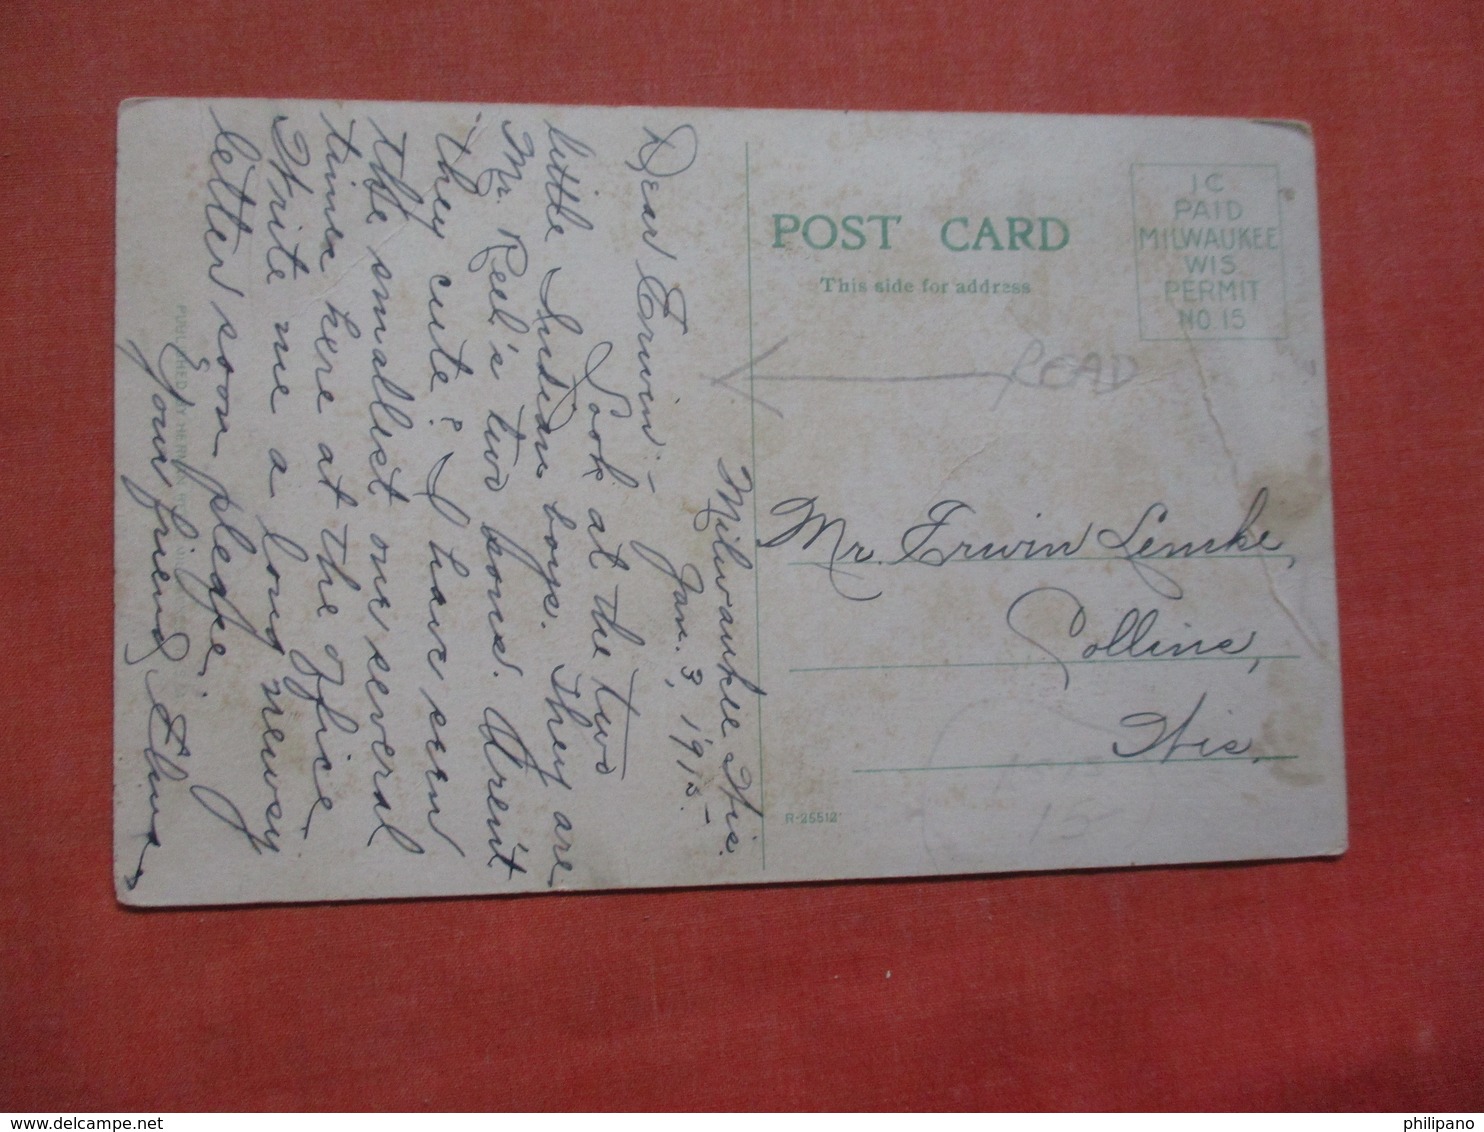 POST CARD
This side for address
1C
PAID
MILWAUKEE
WIS
PERMIT
NO. 15
READ
Milwaukee Wis.
Jan. 3, 1912.-
Dear Erwin:-
Look at the two
little Indian boys. They are
Mr. Reel's two sons. Aren't
they cute? I have seen
the smallest one several
times here at the office
Write me a long newsy
letter soon please.
Your friend, Elma
Mr. Erwin Lemke,
Collins,
Wis.
R-25512
15
PUBLISHED BY
delcampe.net
philipano